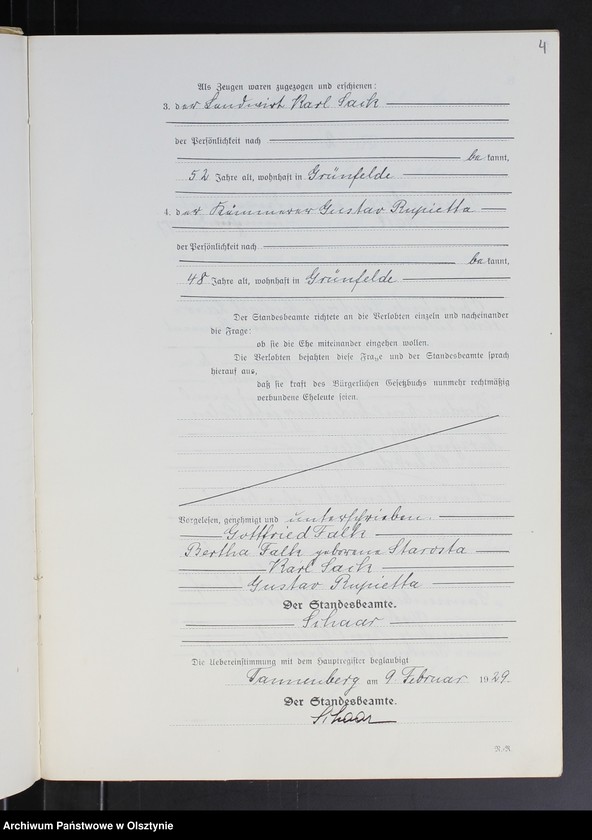 4
Als Zeugen waren zugezogen und erschienen:
3. der Landwirt Karl Sack
der Persönlichkeit nach
be kannt,
52 Jahre alt, wohnhaft in Grünfelde
4. der Kämmerer Gustav Rupietta
der Persönlichkeit nach
be kannt,
48 Jahre alt, wohnhaft in Grünfelde
Der Standesbeamte richtete an die Verlobten einzeln und nacheinander
die Frage:
ob sie die Ehe miteinander eingehen wollen.
Die Verlobten bejahten diese Frage und der Standesbeamte sprach
hierauf aus,
daß sie kraft des Bürgerlichen Gesetzbuchs nunmehr rechtmäßig
verbundene Eheleute seien.
Vorgelesen, genehmigt und unterschrieben.
Gottfried Falk
Bertha Falk geborene Starosta
Karl Sack
Gustav Rupietta
Der Standesbeamte.
Schaar
Die Uebereinstimmung mit dem Hauptregister beglaubigt
Tannenberg am 9. Februar 1929.
Der Standesbeamte.
Schaar
Archiwum Państwowe w Olsztynie